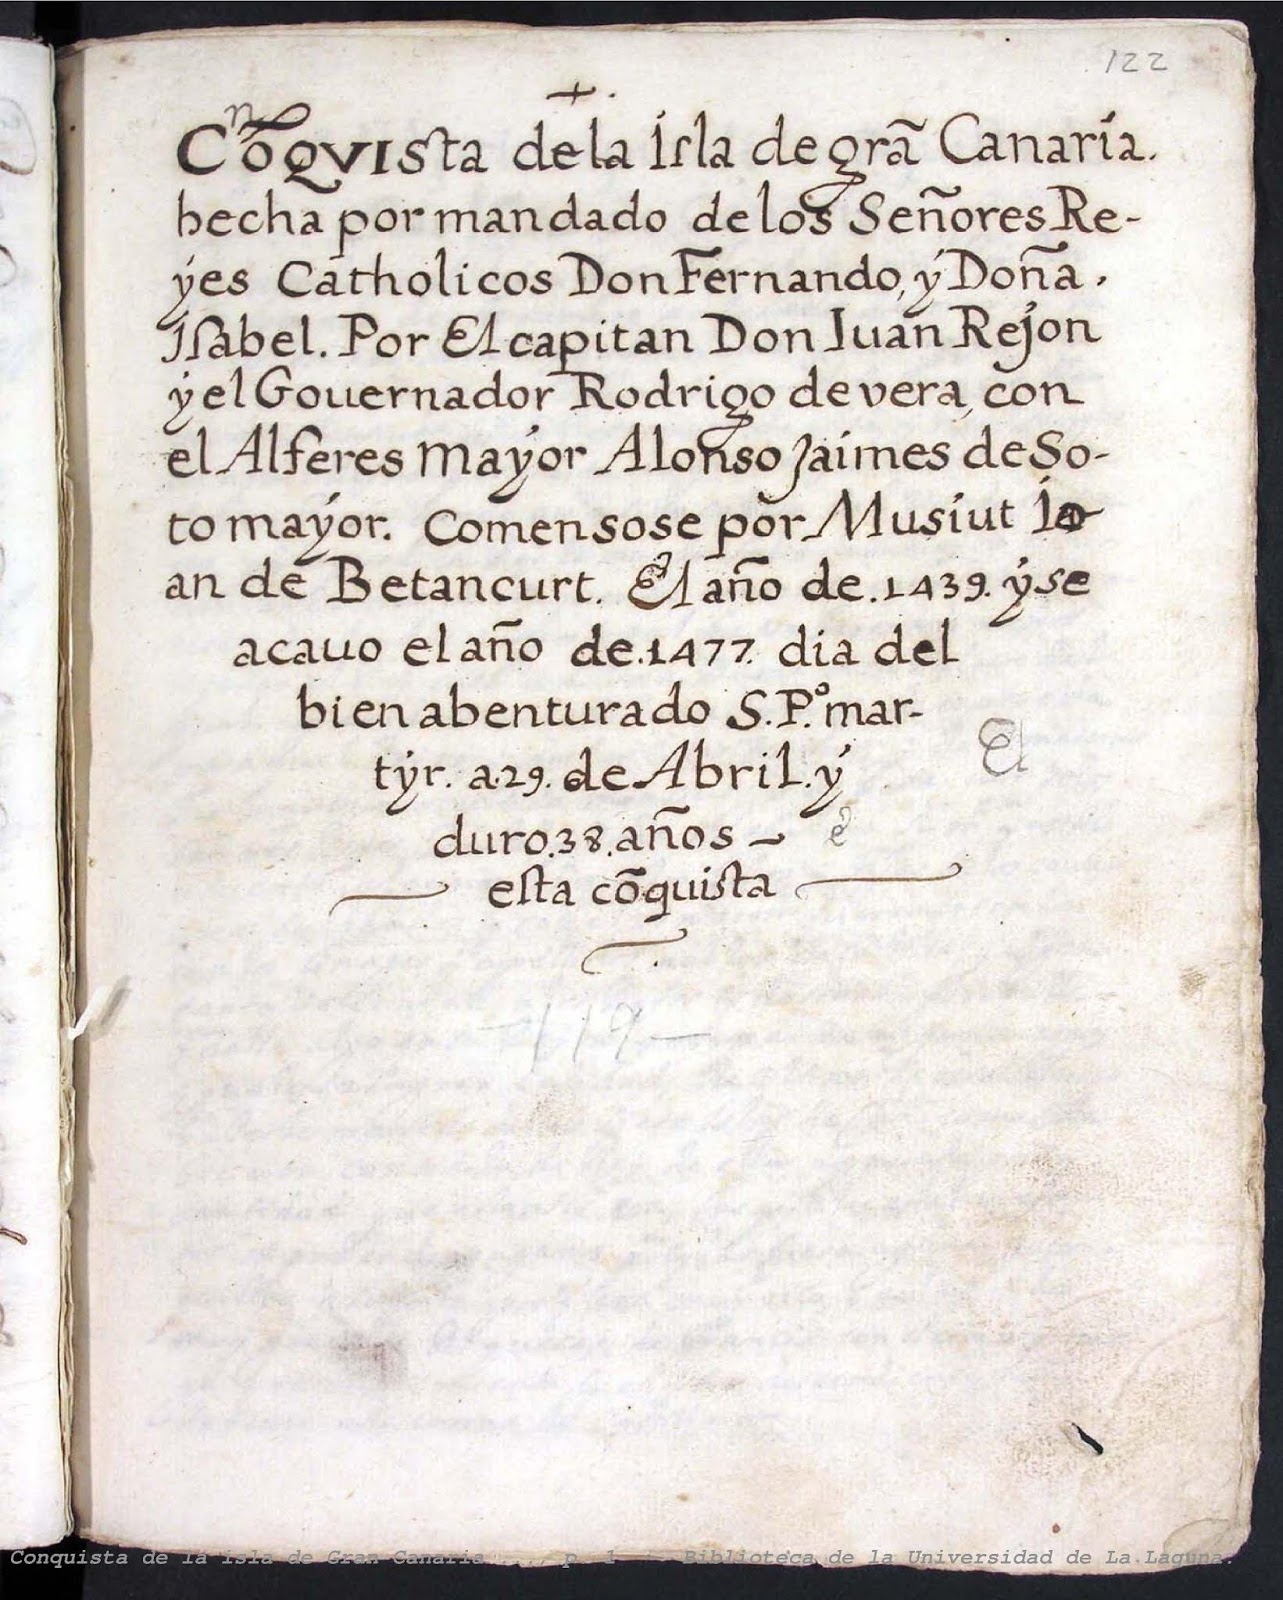 122
+.
Cõnqvista de la Isla de grã Canaria.
hecha por mandado de los Señores Re-
yes Catholicos Don Fernando, y Doña
Isabel. Por El capitan Don Iuan Rejon
y el Gouernador Rodrigo de vera, con
el Alferes mayor Alonso Jaimes de So-
to mayor. Comensose por Musiut Io
an de Betancurt. El año de .1439. y se
acauo el año de .1477. dia del
bien abenturado S. Pº. mar-
tyr. a.29. de Abril. y
El
duro .38. años -
e
esta cõquista
-119-
Conquista de la isla de Gran Canaria ..., p. 1 - Biblioteca de la Universidad de La Laguna